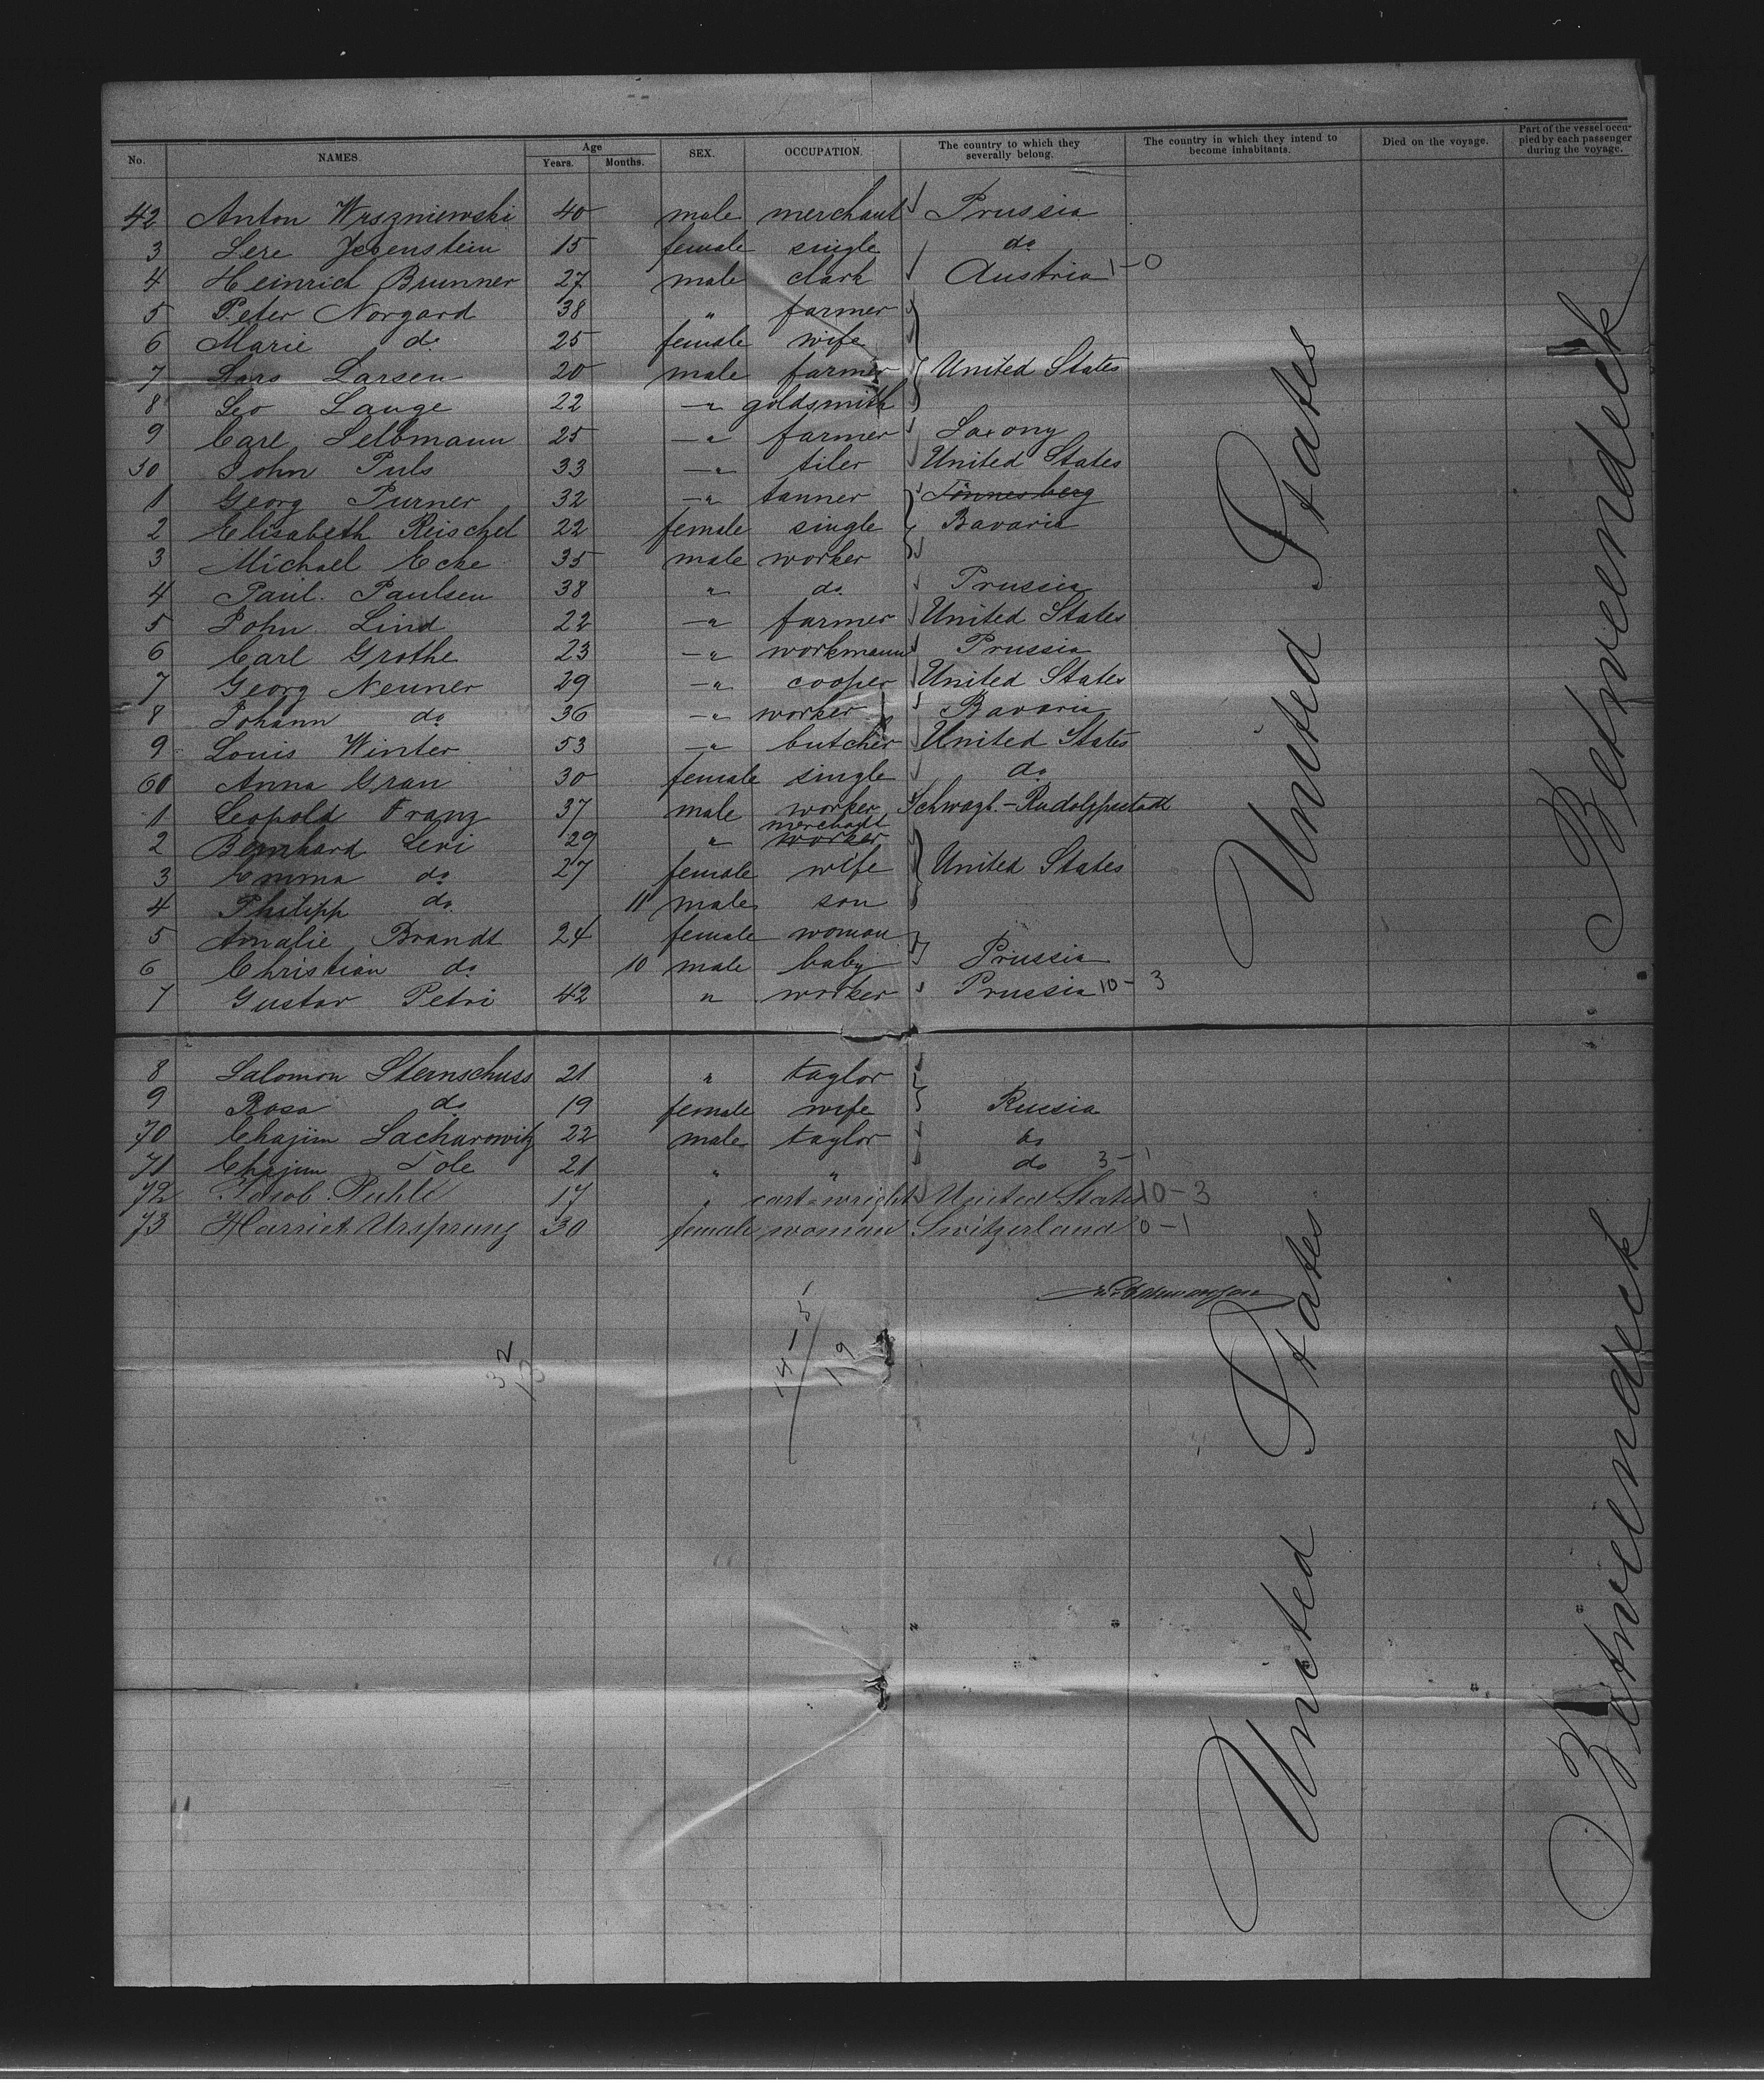 No. NAMES. Age Years. Months. SEX. OCCUPATION. The country to which they severally belong. The country in which they intend to become inhabitants. Died on the voyage. Part of the vessel occupied by each passenger during the voyage.
42 Anton Wrszniewski 40 male merchant Prussia
3 Lere 15 female single do
4 Heinrich Brunner 27 male clark Austria 1-0
5 Peter Norgard 38 " farmer
6 Marie do 25 female wife
7 Lars Larsen 20 male farmer United States
8 Leo Lange 22 " goldsmith
9 Carl Selbmann 25 " farmer Saxony
50 John Puls 33 " tiler United States
1 Georg Purner 32 " tanner Tönnesberg
2 Elisabeth Reischel 22 female single Bavaria
3 Michael Ecke 35 male worker
4 Paul Paulsen 38 " do. Prussia
5 John Lind 22 " farmer United States
6 Carl Grothe 23 " workmann Prussia
7 Georg Neuner 29 " cooper United States
8 Johann do 36 " worker Bavaria
9 Louis Winter 53 " butcher United States
60 Anna Grau 30 female single do
1 Leopold Franz 37 male worker Schwazb.-Rudolspustadt
merchant
2 Bernhard Levi 29 " worker
3 Emma do 27 female wife United States
4 Philipp do 11 male son
5 Amalie Brandt 24 female woman
6 Christian do 10 male baby Prussia
7 Gustav Petri 42 " worker Prussia 10-3
8 Salomon Sternschuss 21 " taylor
9 Rosa do 19 female wife Russia
70 Chajim Sacharowitz 22 male taylor do
71 Chajim Tole 21 " " do 3-1
72 Jacob Puhle 17 " cart-wright United States 10-3
73 Harriet Ursprung 30 female woman Switzerland 0-1
United States
Betweendeck
United States
Betweendeck
32
13
14-5
19